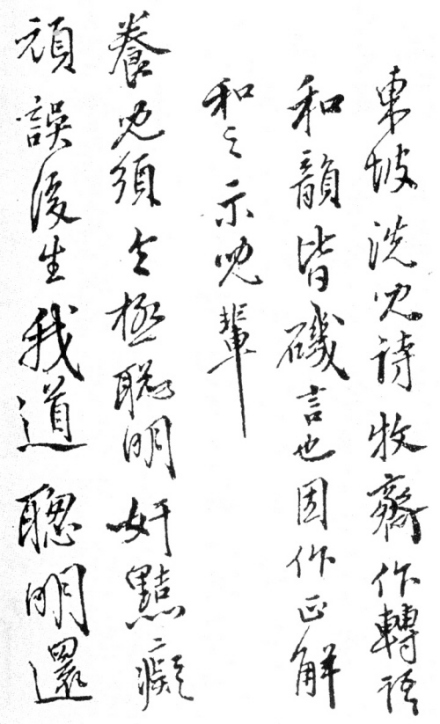 東坡洗兒詩牧齋作轉語
和韻皆磯言也因作正解
和之示兒輩
養兒須令極聰明奸黠癡
頑誤後生我道聰明還